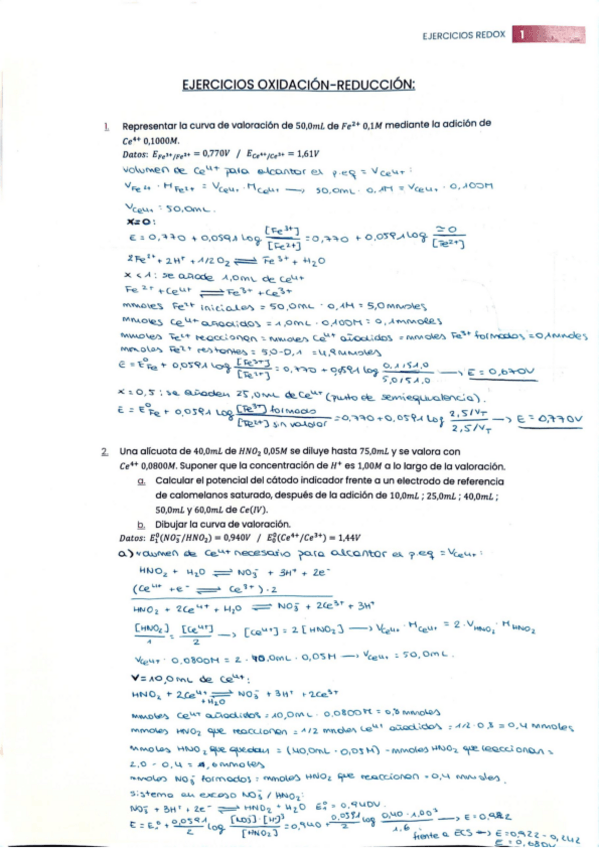 EJERCICIOS REDOX 1
EJERCICIOS OXIDACIÓN-REDUCCIÓN:
1. Representar la curva de valoración de 50,0mL de Fe²⁺ 0,1M mediante la adición de
Ce⁴⁺ 0,1000M.
Datos: E Fe³⁺/Fe²⁺ = 0,770V / E Ce⁴⁺/Ce³⁺ = 1,61V
volumen de Ce⁴⁺ para alcanzar el p.eq = VCe⁴⁺:
VFe²⁺ · MFe²⁺ = VCe⁴⁺ · MCe⁴⁺ → 50,0mL · 0,1M = VCe⁴⁺ · 0,100M
VCe⁴⁺: 50,0mL.
x=0:
E = 0,770 + 0,0591 log [Fe³⁺]/[Fe²⁺] = 0,770 + 0,0591 log ≃0/[Fe²⁺]
2Fe²⁺ + 2H⁺ + 1/2O₂ ⇌ Fe³⁺ + H₂O
x < 1: se añade 1,0mL de Ce⁴⁺
Fe²⁺ + Ce⁴⁺ ⇌ Fe³⁺ + Ce³⁺
mmoles Fe²⁺ iniciales = 50,0mL · 0,1M = 5,0mmoles
mmoles Ce⁴⁺ añadidos = 1,0mL · 0,100M = 0,1mmoles
mmoles Fe²⁺ reaccionen = mmoles Ce⁴⁺ añadidos = mmoles Fe³⁺ formados = 0,1mmoles
mmoles Fe²⁺ restantes = 5,0-0,1 = 4,9mmoles
E = E⁰Fe + 0,0591 log [Fe³⁺]/[Fe²⁺] = 0,770 + 0,0591 log 0,1/51,0 / 5,0/51,0 → E = 0,670V
x = 0,5: se añaden 25,0mL de Ce⁴⁺ (punto de semiequivalencia).
E = E⁰Fe + 0,0591 log [Fe³⁺] formados/[Fe²⁺] sin valorar = 0,770 + 0,0591 log 2,5/VT / 2,5/VT → E = 0,770V
2. Una alícuota de 40,0mL de HNO₂ 0,05M se diluye hasta 75,0mL y se valora con
Ce⁴⁺ 0,0800M. Suponer que la concentración de H⁺ es 1,00M a lo largo de la valoración.
a. Calcular el potencial del cátodo indicador frente a un electrodo de referencia
de calomelanos saturado, después de la adición de 10,0mL ; 25,0mL ; 40,0mL ;
50,0mL y 60,0mL de Ce(IV).
b. Dibujar la curva de valoración.
Datos: E⁰₁(NO₃⁻/HNO₂) = 0,940V / E⁰₂(Ce⁴⁺/Ce³⁺) = 1,44V
a) volumen de Ce⁴⁺ necesario para alcanzar el p.eq = VCe⁴⁺:
HNO₂ + H₂O ⇌ NO₃⁻ + 3H⁺ + 2e⁻
(Ce⁴⁺ + e⁻ ⇌ Ce³⁺) · 2
HNO₂ + 2Ce⁴⁺ + H₂O ⇌ NO₃⁻ + 2Ce³⁺ + 3H⁺
[HNO₂]/1 = [Ce⁴⁺]/2 → [Ce⁴⁺] = 2 [HNO₂] → VCe⁴⁺ · MCe⁴⁺ = 2 · VHNO₂ · MHNO₂
VCe⁴⁺ · 0,0800M = 2 · 40,0mL · 0,05M → VCe⁴⁺ = 50,0mL.
V=10,0mL de Ce⁴⁺:
HNO₂ + 2Ce⁴⁺ + H₂O ⇌ NO₃⁻ + 3H⁺ + 2Ce³⁺
mmoles Ce⁴⁺ añadidos = 10,0mL · 0,0800M = 0,8 mmoles
mmoles HNO₂ que reaccionen = 1/2 mmoles Ce⁴⁺ añadidos = 1/2 · 0,8 = 0,4 mmoles
mmoles HNO₂ que quedan = (40,0mL · 0,05M) - mmoles HNO₂ que reaccionen =
2,0 - 0,4 = 1,6mmoles
mmoles NO₃⁻ formados = mmoles HNO₂ que reaccionen = 0,4 mmoles.
sistema en exceso NO₃⁻ / HNO₂:
NO₃⁻ + 3H⁺ + 2e⁻ ⇌ HNO₂ + H₂O E⁰₁ = 0,940V.
E = E⁰₁ + 0,0591/2 log [NO₃⁻]·[H⁺]³/[HNO₂] = 0,940 + 0,0591/2 log 0,40 · 1,00³/1,6 → E = 0,922
frente a ECS → E = 0,922 - 0,242
E = 0,680V